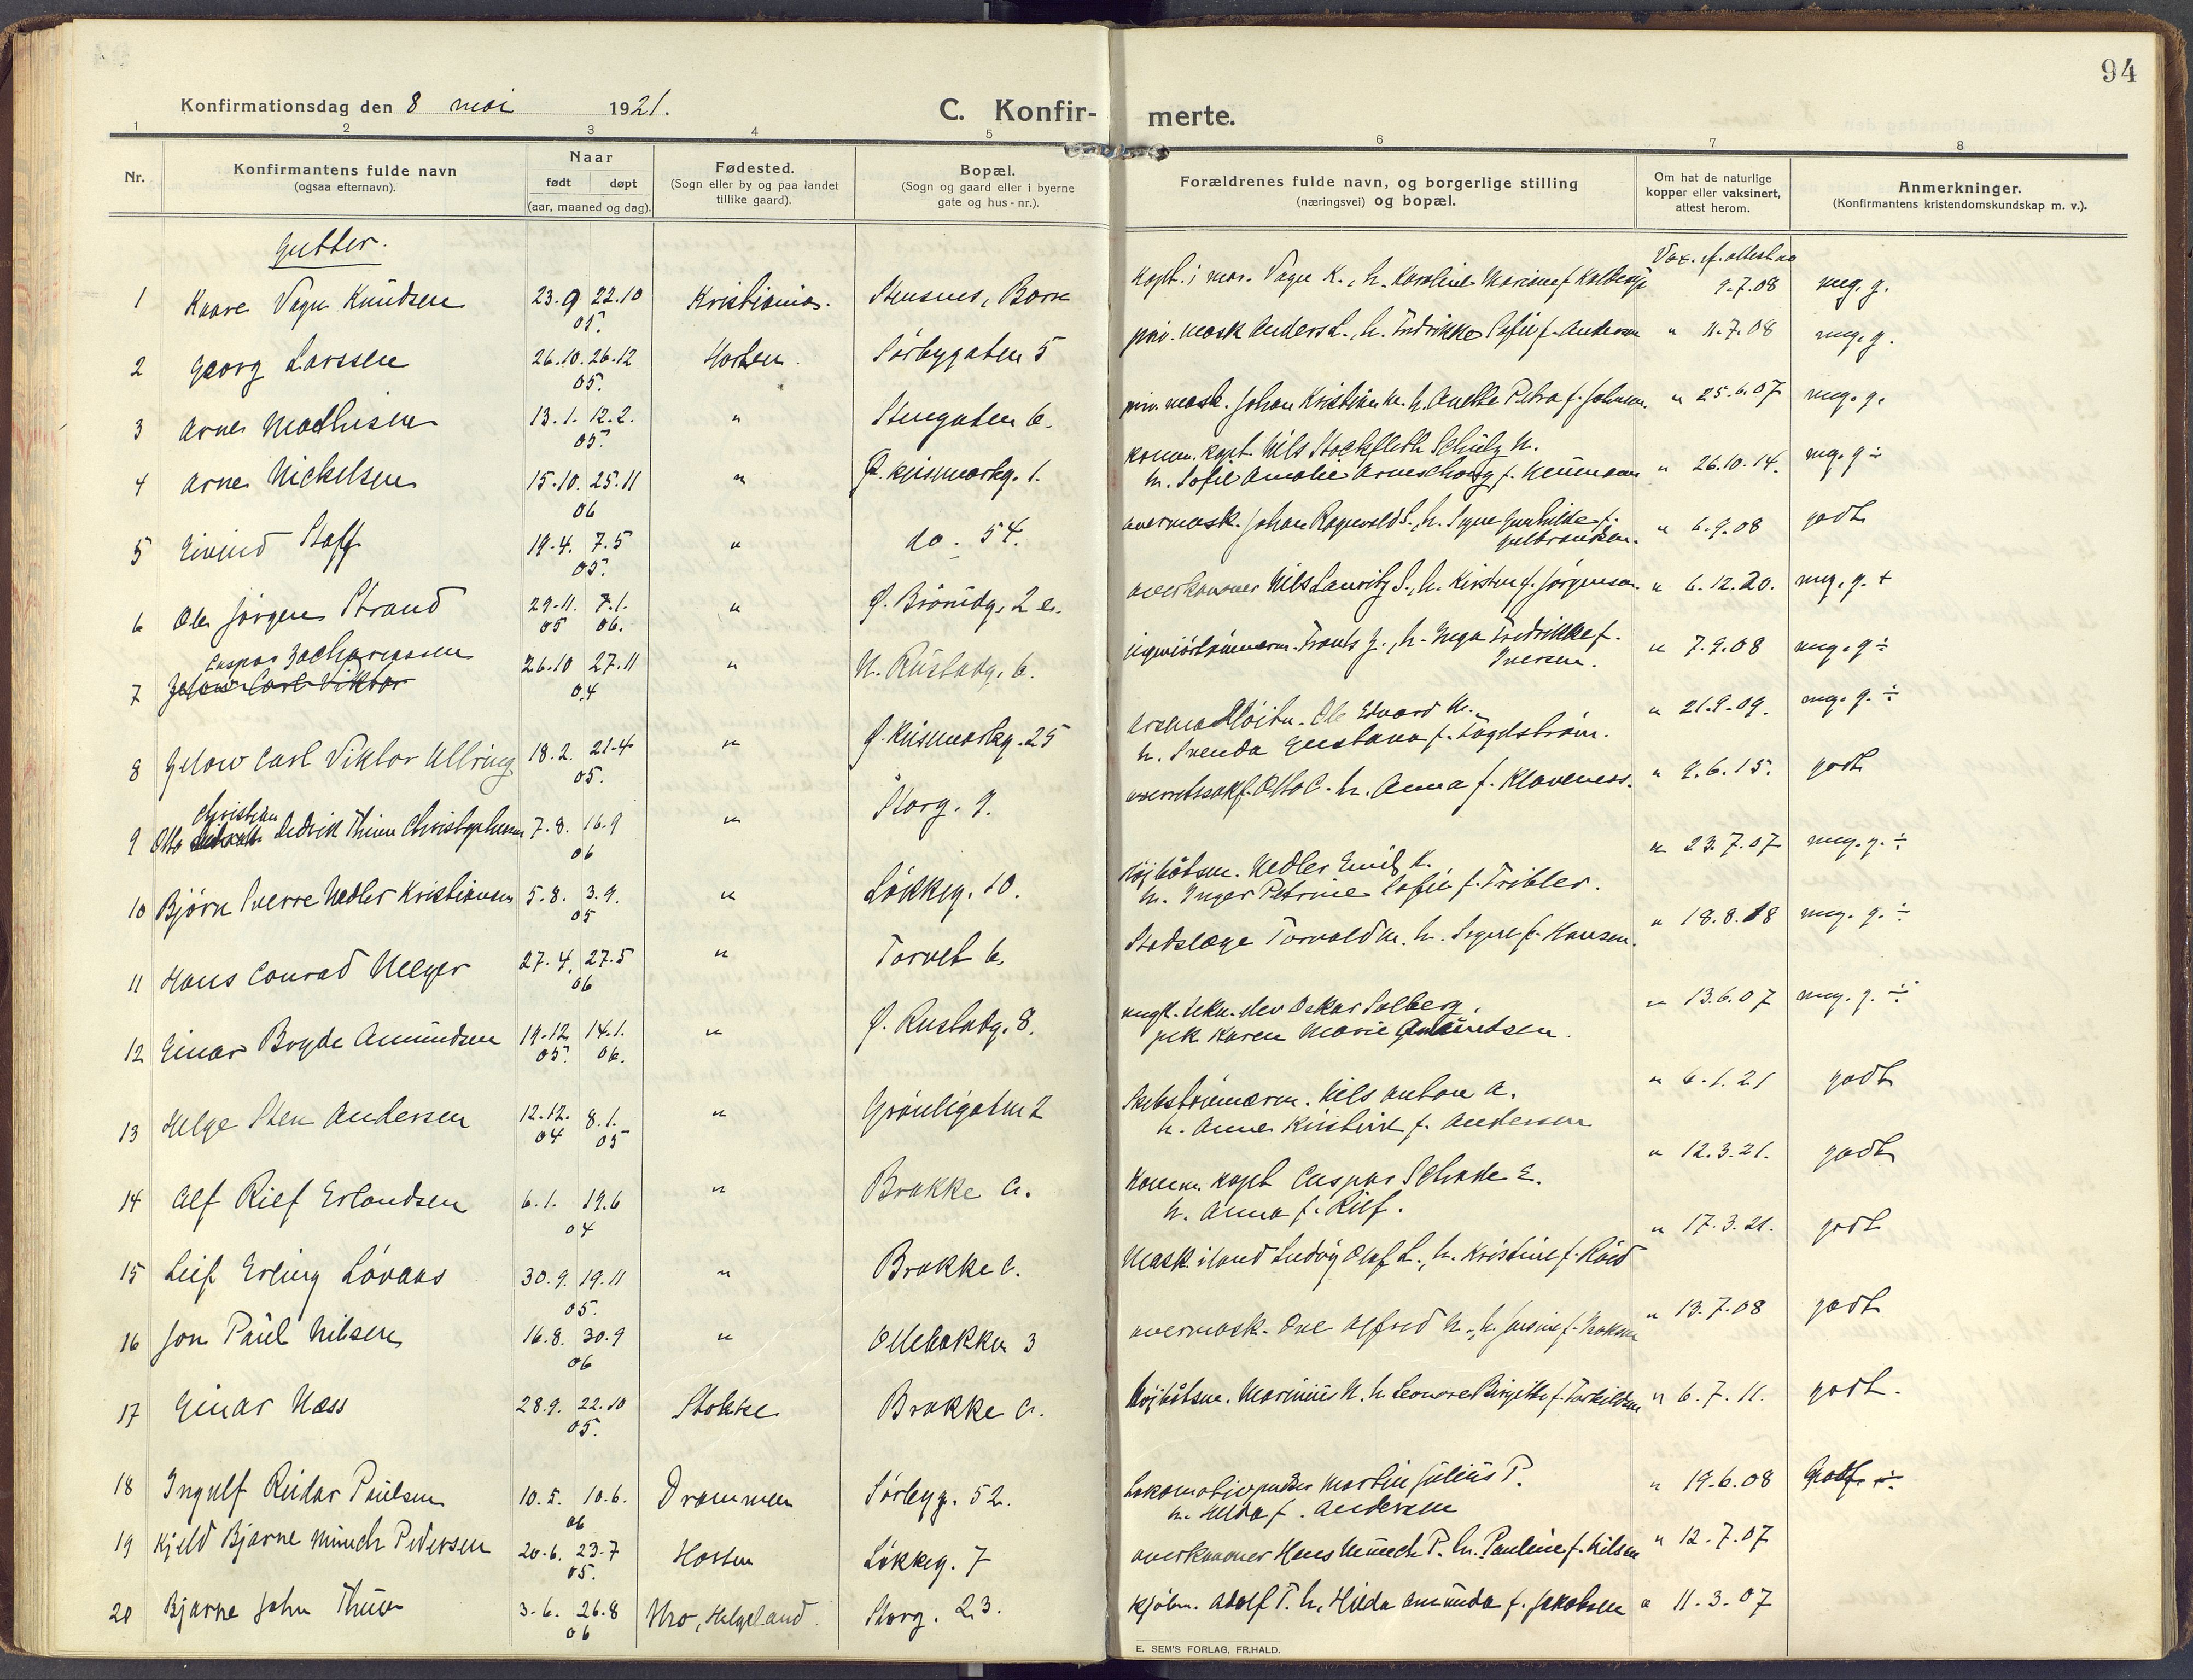 94
Konfirmationsdag den 8 mai 1921.
C. Konfir- merte.
1 2 3 4 5 6 7 8
Nr.
Konfirmantens fulde navn
(ogsaa efternavn).
Naar
født døpt
(aar, maaned og dag).
Fødested.
(Sogn eller by og paa landet
tillike gaard).
Bopæl.
(Sogn og gaard eller i byerne
gate og hus-nr.).
Forældrenes fulde navn, og borgerlige stilling
(næringsvei) og bopæl.
Om hat de naturlige
kopper eller vaksinert,
attest herom.
Anmerkninger.
(Konfirmantens kristendomskundskap m. v.).
Gutter.
1 Kaare Vagn Knudsen 23.9 22.10 05. Kristiania. Stensnes, Borre
Kapt. i mar. Vagn K., h. Karoline Mariane f. Vax. if. attest av 9.7.08 mg. g.
2 Georg Larssen 26.10. 26.12 05. Horten. Sørbygaten 5
Anders L., h. Fredrikke Sofie f. Andersen " 11.7.08 mg. g.
3 Arne Mathisen 13.1. 12.2. 05. " Stengaten 6.
mask. Johan Kristian M. h. Anette Petra f. Johnsen. " 25.6.07 mg. g.
4 Arne Nickelsen 15.10. 25.11 06 " 1.
komm. kapt. Nils Stockfleth Schulz N.
h. Sofie Amalie f. Neumann " 26.10.14. mg. g ÷
5 Eivind Staff 19.4. 7.5 05. " do. 54.
overmask. Johan Ragnvald S., h. Signe Gunhilde f.
Gulbrandsen. " 6.9.08 godt
6 Ole Jørgen Strand 29.11. 7.1. 05 06. " 2 c.
overkanoner Nils Lauritz S., h. Kirsten f. Jørgensen " 6.12.20. mg. g. +
7 Caspar Zachariassen
26.10 27.11 04 " N. Rustadg. 6.
Frants Z., h. Inga Fredrikke f.
Iversen. " 7.9.08 mg. g ÷
8 Gelow Carl Viktor Ullring 18.2. 21.4 05. " 25
Ole Edvard U.,
h. Svenda Gustava f. " 21.9.09. mg. g. ÷
9 Otto Christian Thine Christophersen 7.8. 16.9 06 " Storg. 9.
Otto C. h. Anna f. Klaveness. " 2.6.15. godt
10 Bjørn Sverre Nedler Kristiansen 5.8. 3.9. 05 " Løkkeg. 10.
Nedler Emil K.
h. Inger Petrine Sofie f. Tribler. " 23.7.07 mg. g. ÷
11 Hans Conrad Meyer 27.4. 27.5 06 " Torvet 6.
Stadslæge Torvald M. h. Signe f. Hansen. " 18.8.18 mg. g. ÷
12 Einar Bryde Amundsen 19.12 14.1. 05. 06. " Ø. Rustadg. 8.
ungk. tekn. elev Oskar Solberg,
pik Karen Marie Amundsen. " 13.6.07 mg. g. ÷
13 Helge Sten Andersen 12.12. 8.1. 04 05 " Grønligaten 2
Nils Anton A.
h. Anne Kristine f. Andersen " 6.1.21 godt
14 Alf Rief Erlandsen 6.1. 19.6 04 " Brakke A.
Komm. kapt Caspar Schade E.
h. Anna f. Rief. " 12.3.21. godt
15 Leif Erling Løvaas 30.9. 19.11 05. " Brakke C.
Mask. Ludvig Olaf L., h. Kristine f. " 17.3.21. godt
16 Jon Paul Nilsen 16.8. 30.9 06 " Ollebakken 3
overmask. Ove Alfred N., h. f. " 13.7.08 godt
17 Einar Næss 28.9. 22.10 05. Stokke Brakke A.
Marinius N. h. Leonore Birgitte f. " 6.7.11. godt.
18 Ingulf Reidar Paulsen 10.5. 10.6. 06 Drammen Sørbyg. 52.
Martin Julius P.
h. Hilda f. Andersen " 19.6.08 Godt ÷
19 Kjeld Bjarne Münch Pedersen 20.6. 23.7 05. Horten Løkkeg. 7
overkanoner Hans Münch P. h. Pauline f. Nilsen " 12.7.07
20 Bjarne John Thue 3.6. 26.8 06 Mo, Helgeland. Storg. 23.
Adolf T. h. Hilda Amunda f. Jakobsen " 11.3.07
E. SEM'S FORLAG, FR.HALD.